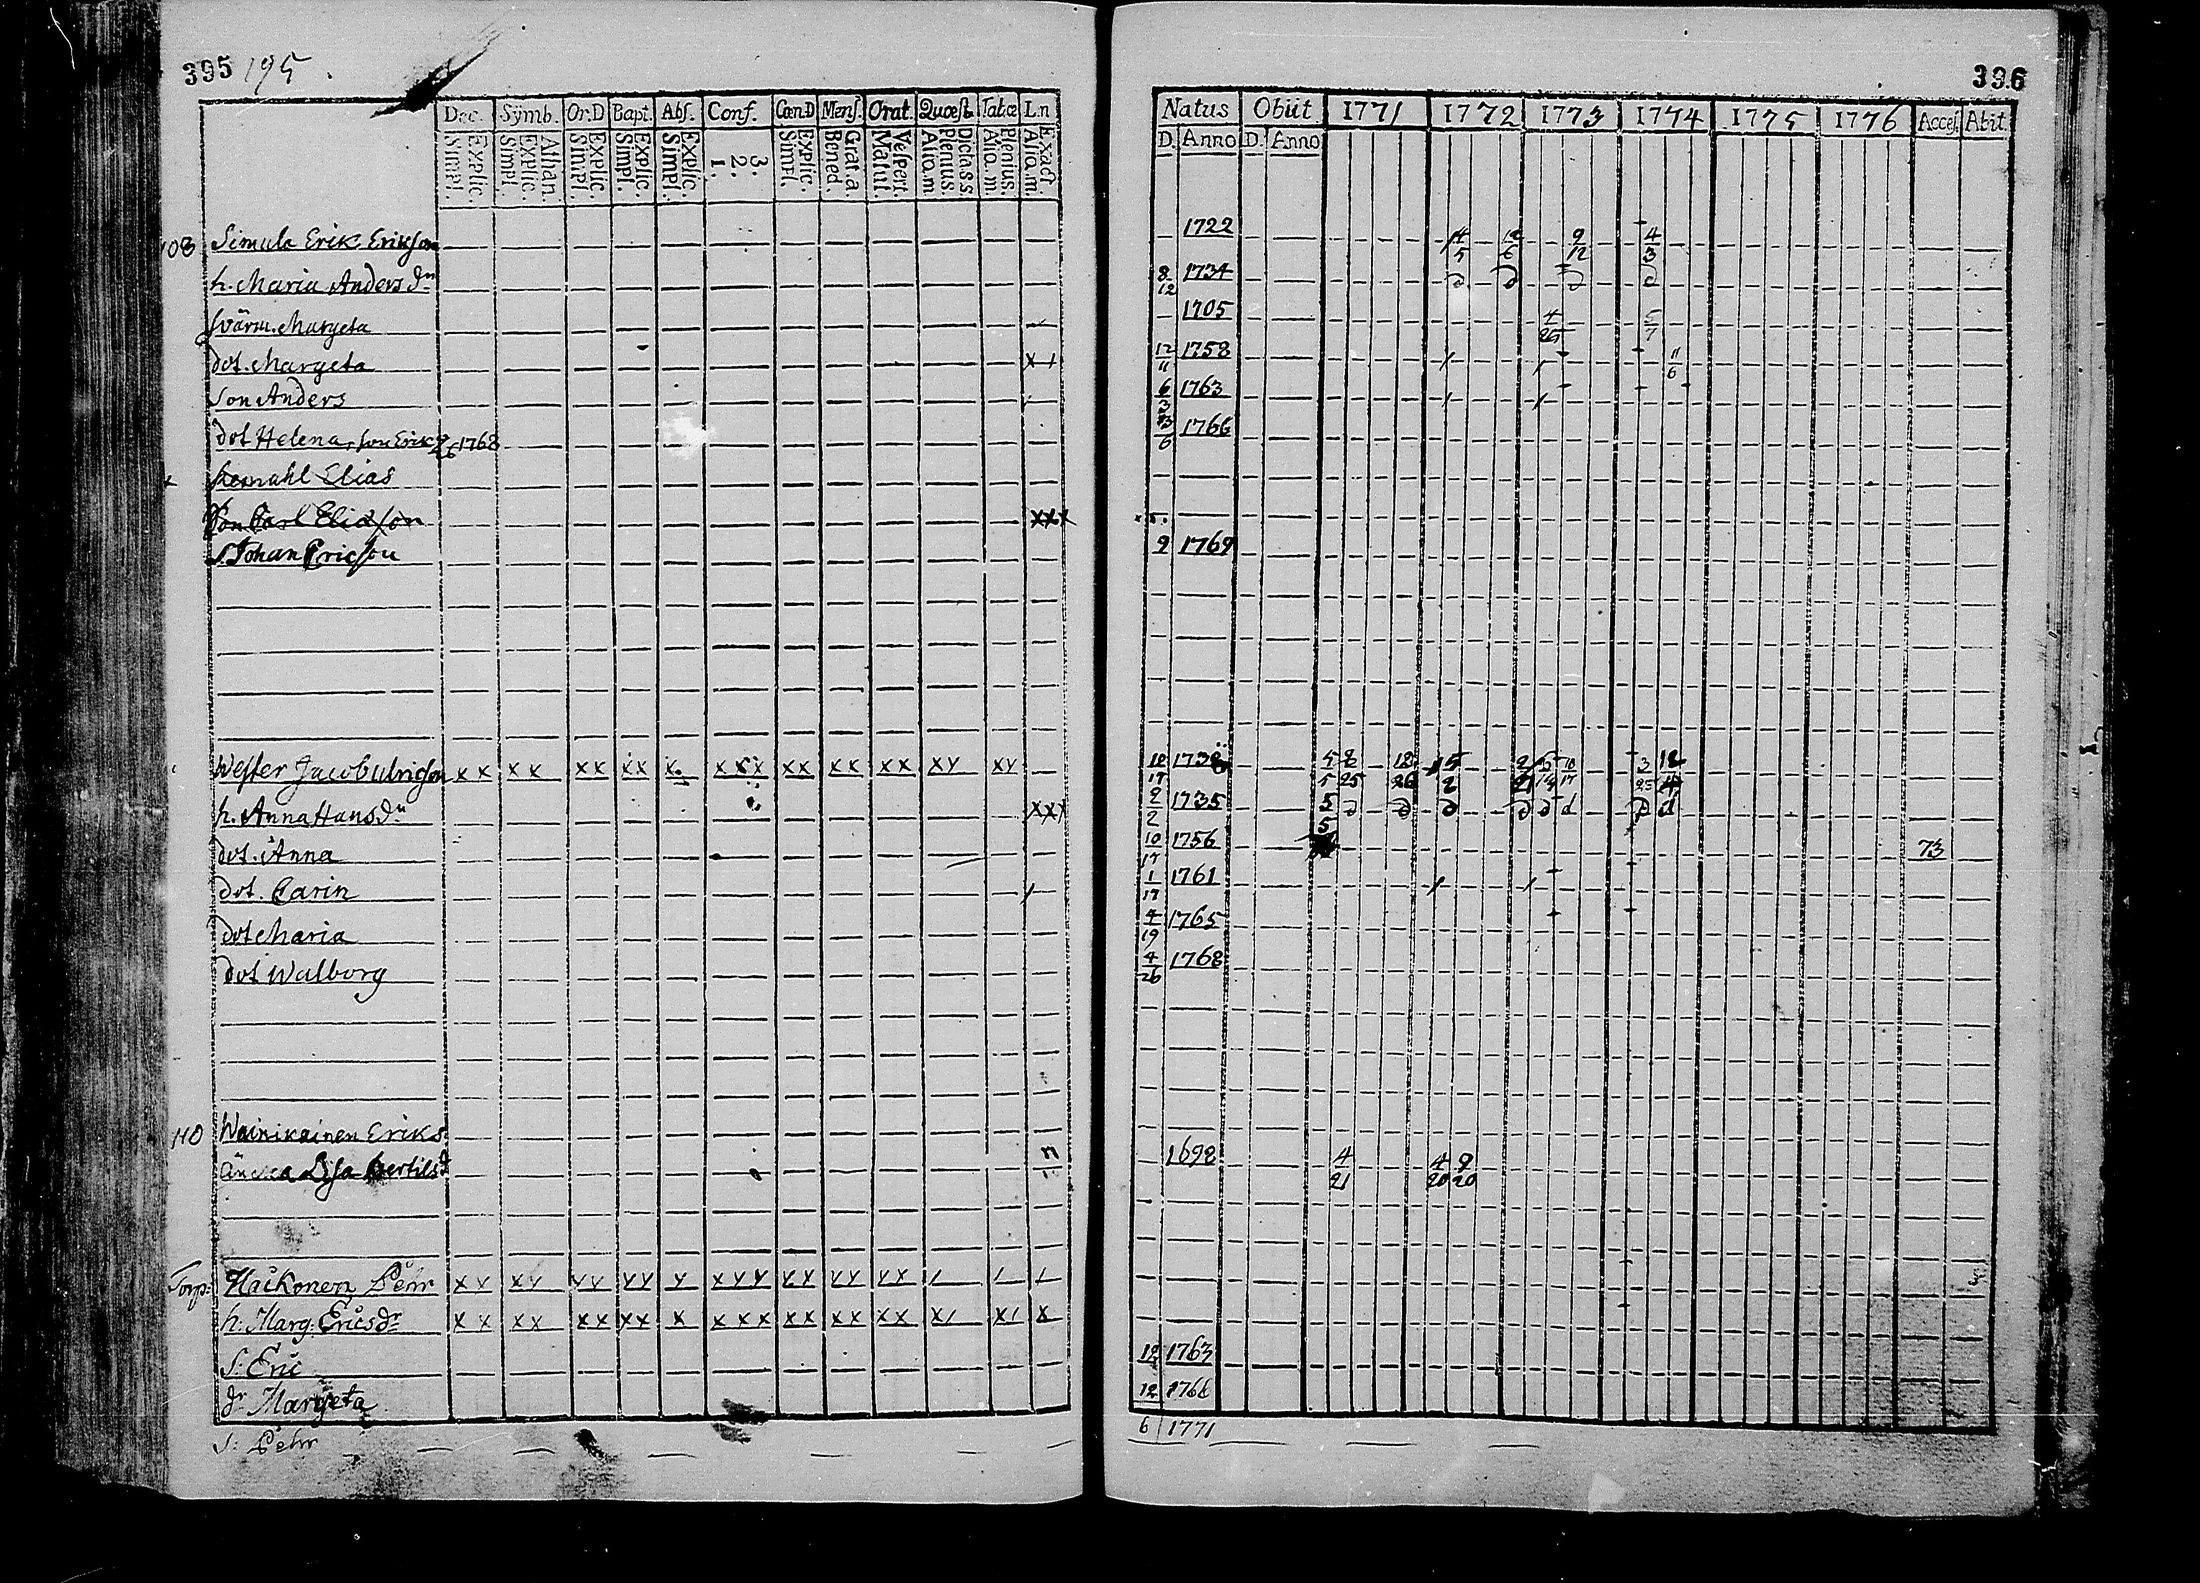 395 195.
Dec. Symb. Or.D Bapt. Abs. Conf. Cœn.D Mens. Orat. Quœst. Tab.œ L.n
Explic. Simpl. Athan. Explic. Simpl. Explic. Simpl. Explic. Simpl. Explic. Simpl. 3. 2. 1. Explic. Simpl. Grat.a Bened. Vespert. Matut. Dicta.s.s. Plenius. Alio.m. Plenius. Alio.m. Exact. Alio.m.
108 Simula Erik Erikson
h. Maria Anders dr
svärm. Margeta
dot. Margeta x
son Anders
dot Helena, son Erik 1768
Elias
son Carl Eliason xxx
S. Johan Ericson
Wester Jacob Ulricson x x x x x x x x x. x x x x x x x x x x y x y
h. Anna Hans dr xxx
dot. Anna
dot. Carin
dot Maria
dot Walborg
110 Wainikainen Eriks
änckia Lisa Bertils d
Torp: Hackonen Pehr x x x y y y y y y x y y y y y y y x
h: Marg: Ericsdr x x x x x x x x x x x x x x x x x x x x
S: Eric
dr Margeta
S: Pehr
396
Natus Obiit 1771 1772 1773 1774 1775 1776 Acces. Abit.
D. Anno D. Anno
1722 4/5 12/6 9/12 4/3
8/12 1734 d d d d
1705 4/25 5/7
12/11 1758 11/6
6/3 1763
1766
9 1769
10/17 1738 5/5 8/25 12/26
2/2 1735 5/5 d d d d d d d d
10/17 1756 73
1/17 1761
4/19 1765
4/26 1768
1698 4/21 4/20 9/20
12 1763
12 1766
6 1771